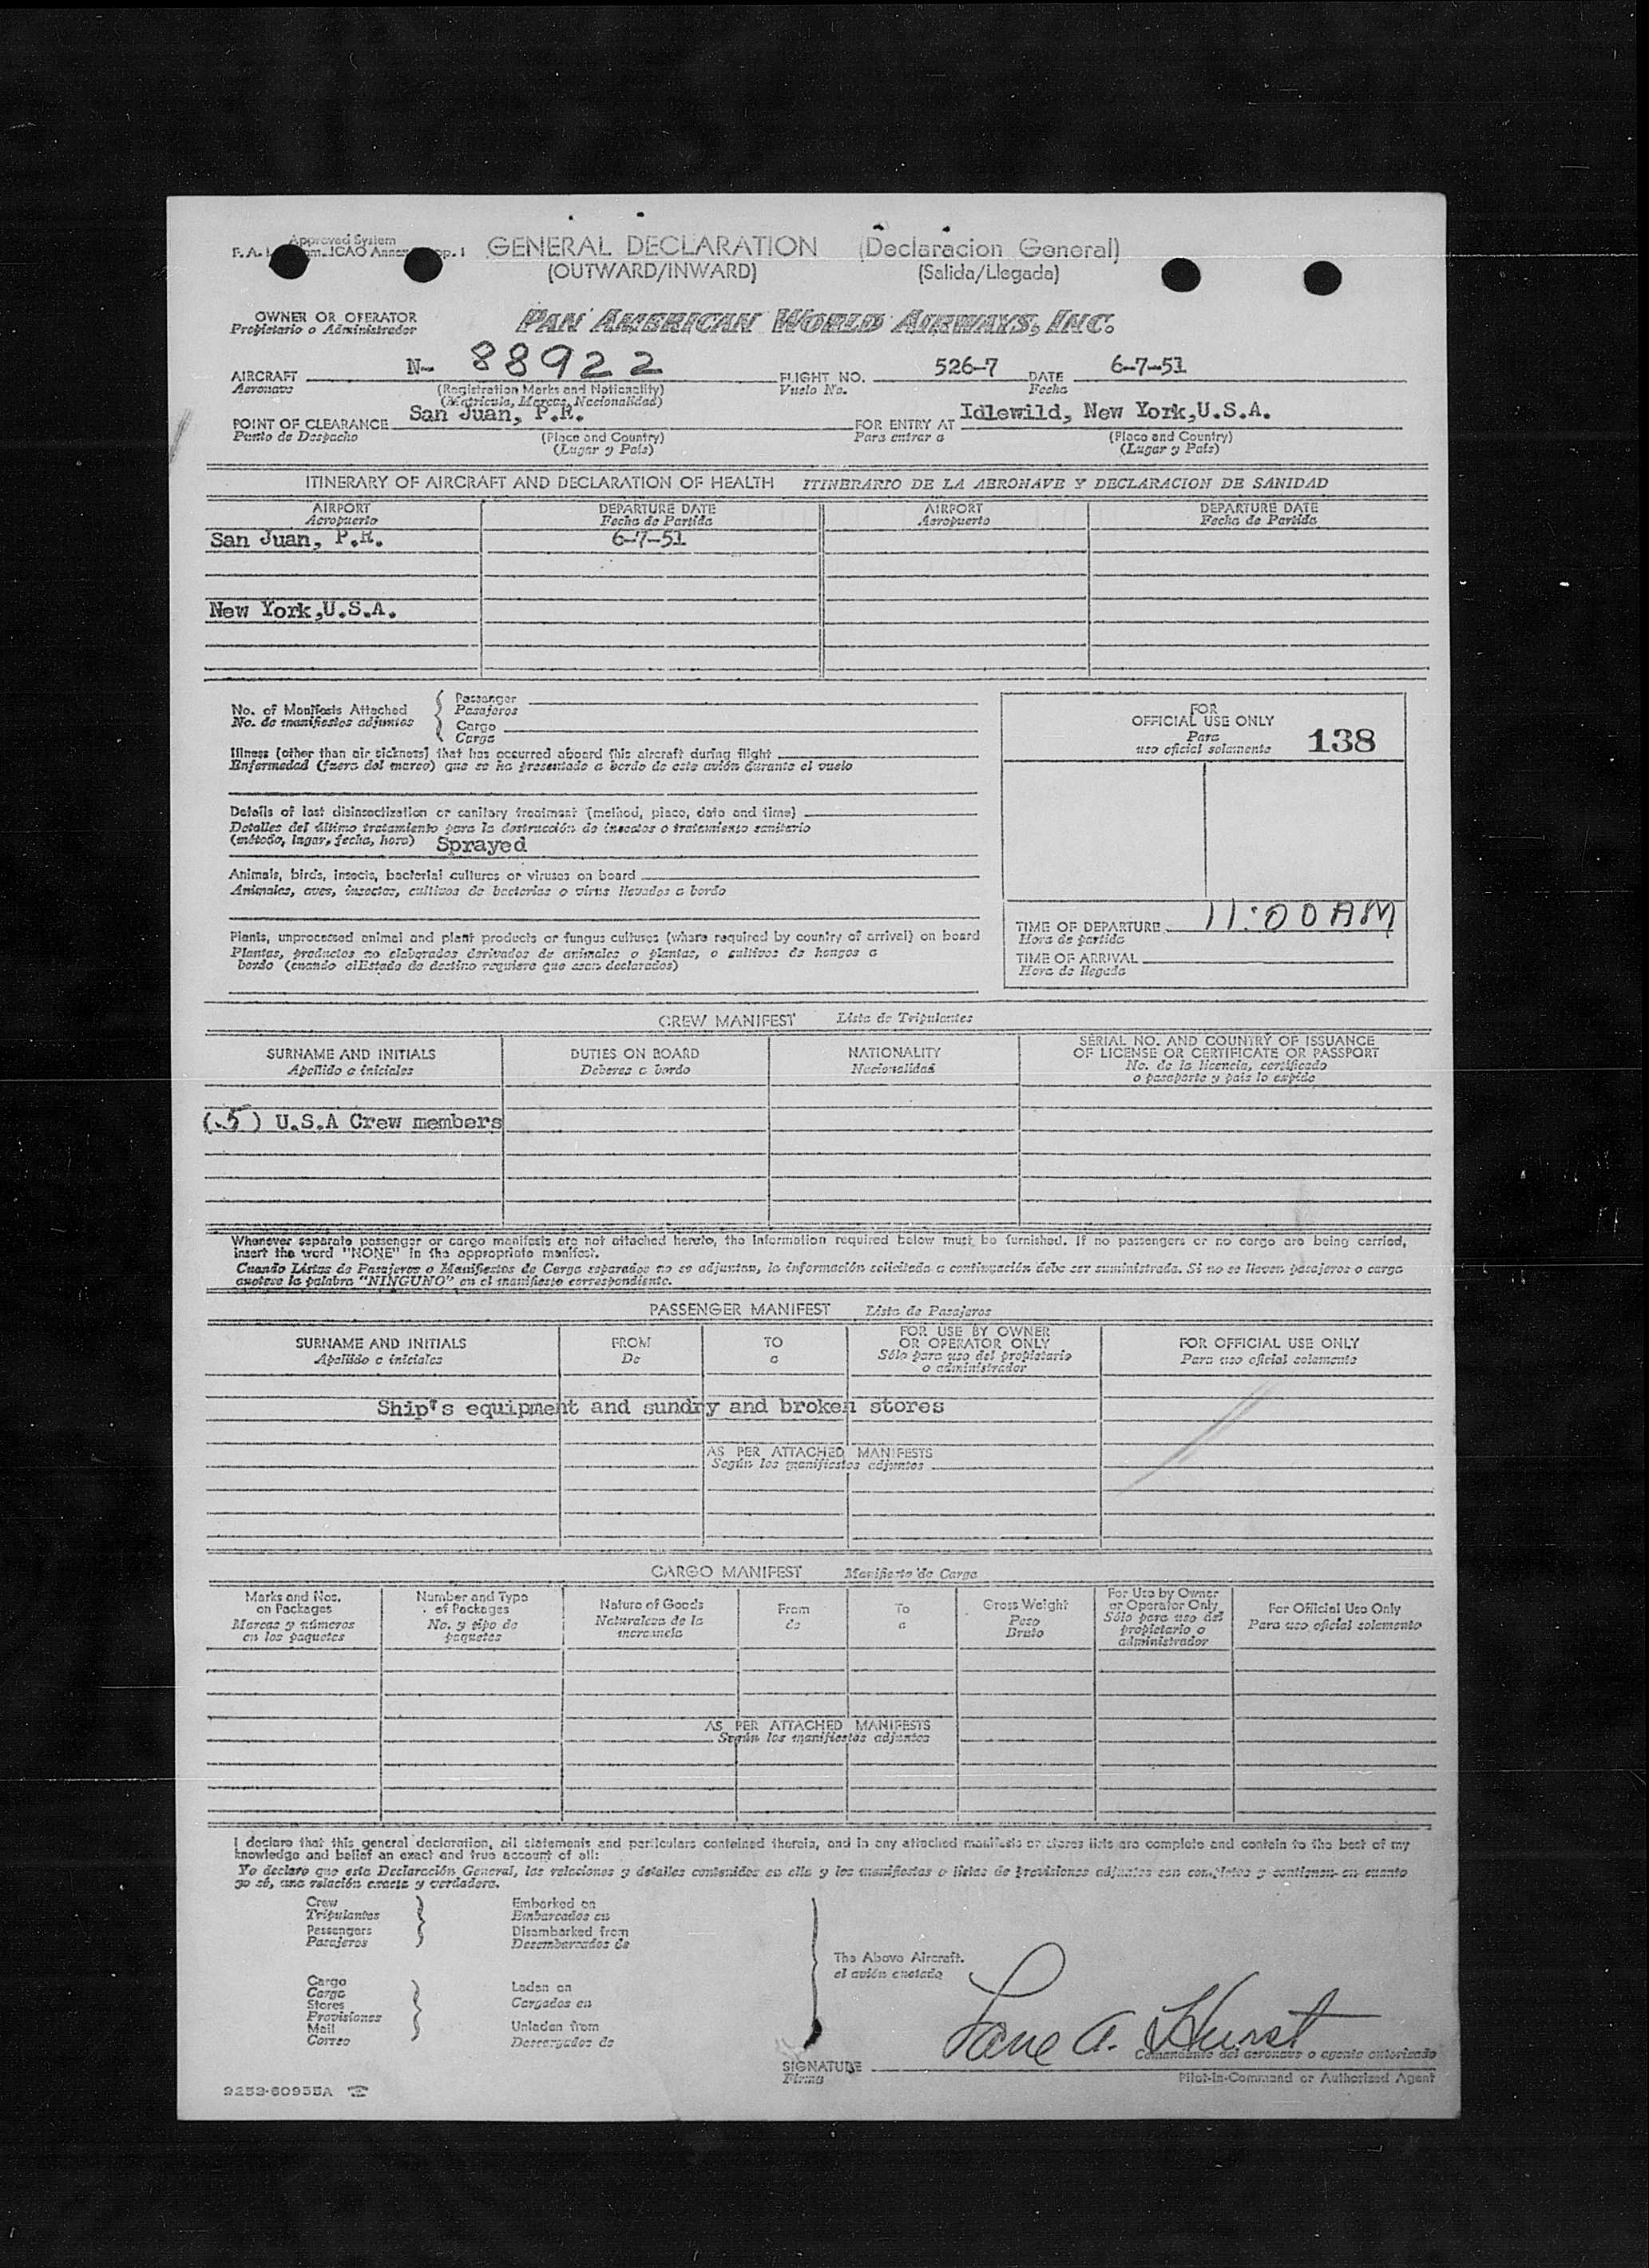 Approved System
GENERAL DECLARATION (Declaracion General)
(OUTWARD/INWARD) (Salida/Llegada)
OWNER OR OPERATOR
Propietario o Administrador
PAN AMERICAN WORLD AIRWAYS, INC.
AIRCRAFT N- 88922 FLIGHT NO. 526-7 DATE 6-7-51
Aeronave (Registration Marks and Nationality) Vuelo No. Fecha
(Matricula, Marcas, Nacionalidad)
POINT OF CLEARANCE San Juan, P.R. FOR ENTRY AT Idlewild, New York,U.S.A.
Punto de Despacho (Place and Country) Para entrar a (Place and Country)
(Lugar y País) (Lugar y País)
ITINERARY OF AIRCRAFT AND DECLARATION OF HEALTH ITINERARIO DE LA AERONAVE Y DECLARACION DE SANIDAD
AIRPORT DEPARTURE DATE AIRPORT DEPARTURE DATE
Aeropuerto Fecha de Partida Aeropuerto Fecha de Partida
San Juan, P.R. 6-7-51
New York,U.S.A.
No. of Manifests Attached
No. de manifiestos adjuntos
Passenger
Pasajeros
Cargo
Carga
Illness (other than air sickness) that has occurred aboard this aircraft during flight
Enfermedad (fuera del mareo) que se ha presentado a bordo de este avión durante el vuelo
Details of last disinsectization or sanitary treatment (method, place, date and time)
Detalles del último tratamiento para la destrucción de insectos o tratamiento sanitario
(método, lugar, fecha, hora) Sprayed
Animals, birds, insects, bacterial cultures or viruses on board
Animales, aves, insectos, cultivos de bacterias o virus llevados a bordo
Plants, unprocessed animal and plant products or fungus cultures (where required by country of arrival) on board
Plantas, productos no elaborados derivados de animales o plantas, o cultivos de hongos a
bordo (cuando elEstado de destino requiere que sean declarados)
FOR
OFFICIAL USE ONLY
Para
uso oficial solamente
138
TIME OF DEPARTURE 11:00AM
Hora de partida
TIME OF ARRIVAL
Hora de llegada
CREW MANIFEST Lista de Tripulantes
SURNAME AND INITIALS DUTIES ON BOARD NATIONALITY SERIAL NO. AND COUNTRY OF ISSUANCE
OF LICENSE OR CERTIFICATE OR PASSPORT
Apellido e iniciales Deberes a bordo Nacionalidad No. de la licencia, certificado
o pasaporte y país lo expide
(5) U.S.A Crew members
Whenever separate passenger or cargo manifests are not attached hereto, the information required below must be furnished. If no passengers or no cargo are being carried,
insert the word "NONE" in the appropriate manifest.
Cuando Listas de Pasajeros o Manifiestos de Carga separados no se adjuntan, la información solicitada a continuación debe ser suministrada. Si no se llevan pasajeros o carga
anotese la palabra "NINGUNO" en el manifiesto correspondiente.
PASSENGER MANIFEST Lista de Pasajeros
SURNAME AND INITIALS FROM TO FOR USE BY OWNER
OR OPERATOR ONLY FOR OFFICIAL USE ONLY
Apellido e iniciales De a Sólo para uso del propietario
o administrador Para uso oficial solamente
Ship's equipment and sundry and broken stores
AS PER ATTACHED MANIFESTS
Según los manifiestos adjuntos
CARGO MANIFEST Manifiesto de Carga
Marks and Nos.
on Packages
Marcas y números
en los paquetes
Number and Type
of Packages
No. y tipo de
paquetes
Nature of Goods
Naturaleza de la
mercancía
From
de
To
a
Gross Weight
Peso
Bruto
For Use by Owner
or Operator Only
Sólo para uso del
propietario o
administrador
For Official Use Only
Para uso oficial solamente
AS PER ATTACHED MANIFESTS
Según los manifiestos adjuntos
I declare that this general declaration, all statements and particulars contained therein, and in any attached manifests or stores lists are complete and contain to the best of my
knowledge and belief an exact and true account of all:
Yo declaro que esta Declaración General, las relaciones y detalles contenidos en ella y los manifiestos o listas de provisiones adjuntas son completos y contienen en cuanto
yo sé, una relación exacta y verdadera.
Crew
Tripulantes
Passengers
Pasajeros
Embarked on
Embarcados en
Disembarked from
Desembarcados de
Cargo
Carga
Stores
Provisiones
Mail
Correo
Laden on
Cargados en
Unladen from
Descargados de
The Above Aircraft.
el avión anotado
Lane A. Hurst
SIGNATURE
Firma
Comandante del aeronave o agente autorizado
Pilot-in-Command or Authorized Agent
9253-60955A